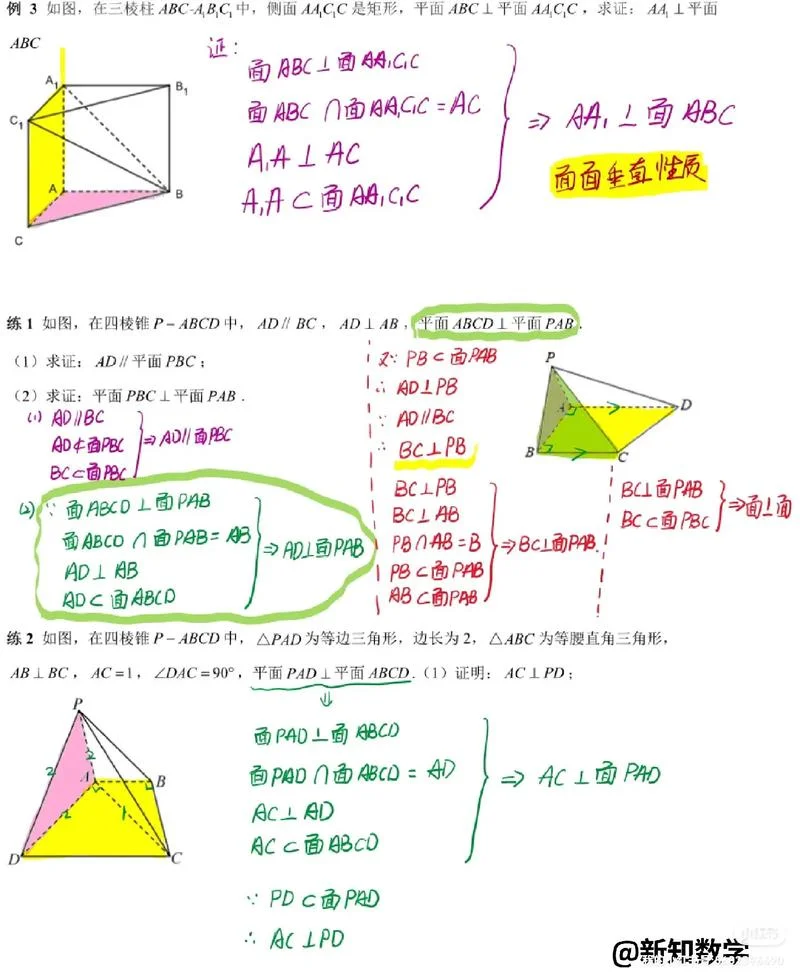 例 3 如图，在三棱柱 ABC-A₁B₁C₁ 中，侧面 AA₁C₁C 是矩形，平面 ABC⊥平面 AA₁C₁C，求证：AA₁⊥平面
ABC
证：
面ABC⊥面AA₁C₁C
面ABC∩面AA₁C₁C=AC
A₁A⊥AC
A₁A⊂面AA₁C₁C
⇒ AA₁⊥面ABC
面面垂直性质
A₁
B₁
C₁
A
B
C
练 1 如图，在四棱锥 P－ABCD 中，AD∥BC，AD⊥AB，平面 ABCD⊥平面 PAB．
（1）求证：AD∥平面 PBC；
（2）求证：平面 PBC⊥平面 PAB．
(1) AD∥BC
AD⊄面PBC
BC⊂面PBC
⇒AD∥面PBC
(2) ∵ 面ABCD⊥面PAB
面ABCD∩面PAB=AB
AD⊥AB
AD⊂面ABCD
⇒AD⊥面PAB
又∵ PB⊂面PAB
∴ AD⊥PB
∵ AD∥BC
∴ BC⊥PB
BC⊥PB
BC⊥AB
PB∩AB=B
PB⊂面PAB
AB⊂面PAB
⇒BC⊥面PAB
P
D
B
C
BC⊥面PAB
BC⊂面PBC
⇒面⊥面
练 2 如图，在四棱锥 P－ABCD 中，△PAD 为等边三角形，边长为 2，△ABC 为等腰直角三角形，
AB⊥BC，AC=1，∠DAC=90°，平面 PAD⊥平面 ABCD．（1）证明：AC⊥PD；
⇓
面PAD⊥面ABCD
面PAD∩面ABCD=AD
AC⊥AD
AC⊂面ABCD
⇒ AC⊥面PAD
∵ PD⊂面PAD
∴ AC⊥PD
P
2
2
A
B
2
1
D
C
@新知数学